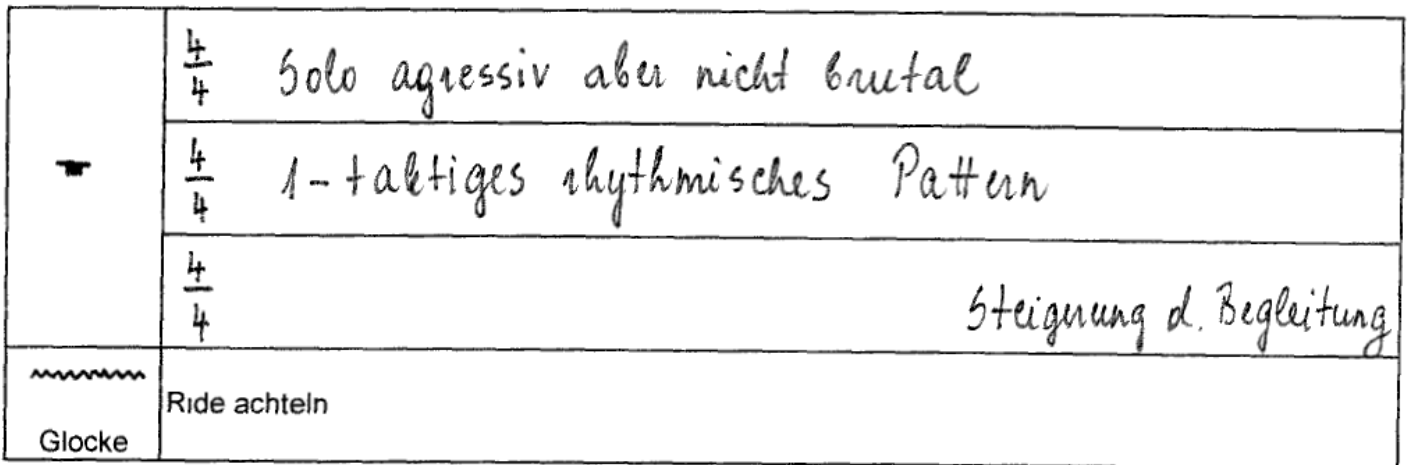 4/4 Solo agressiv aber nicht brutal
4/4 1-taktiges rhythmisches Pattern
4/4 Steigerung d. Begleitung
Ride achteln
Glocke